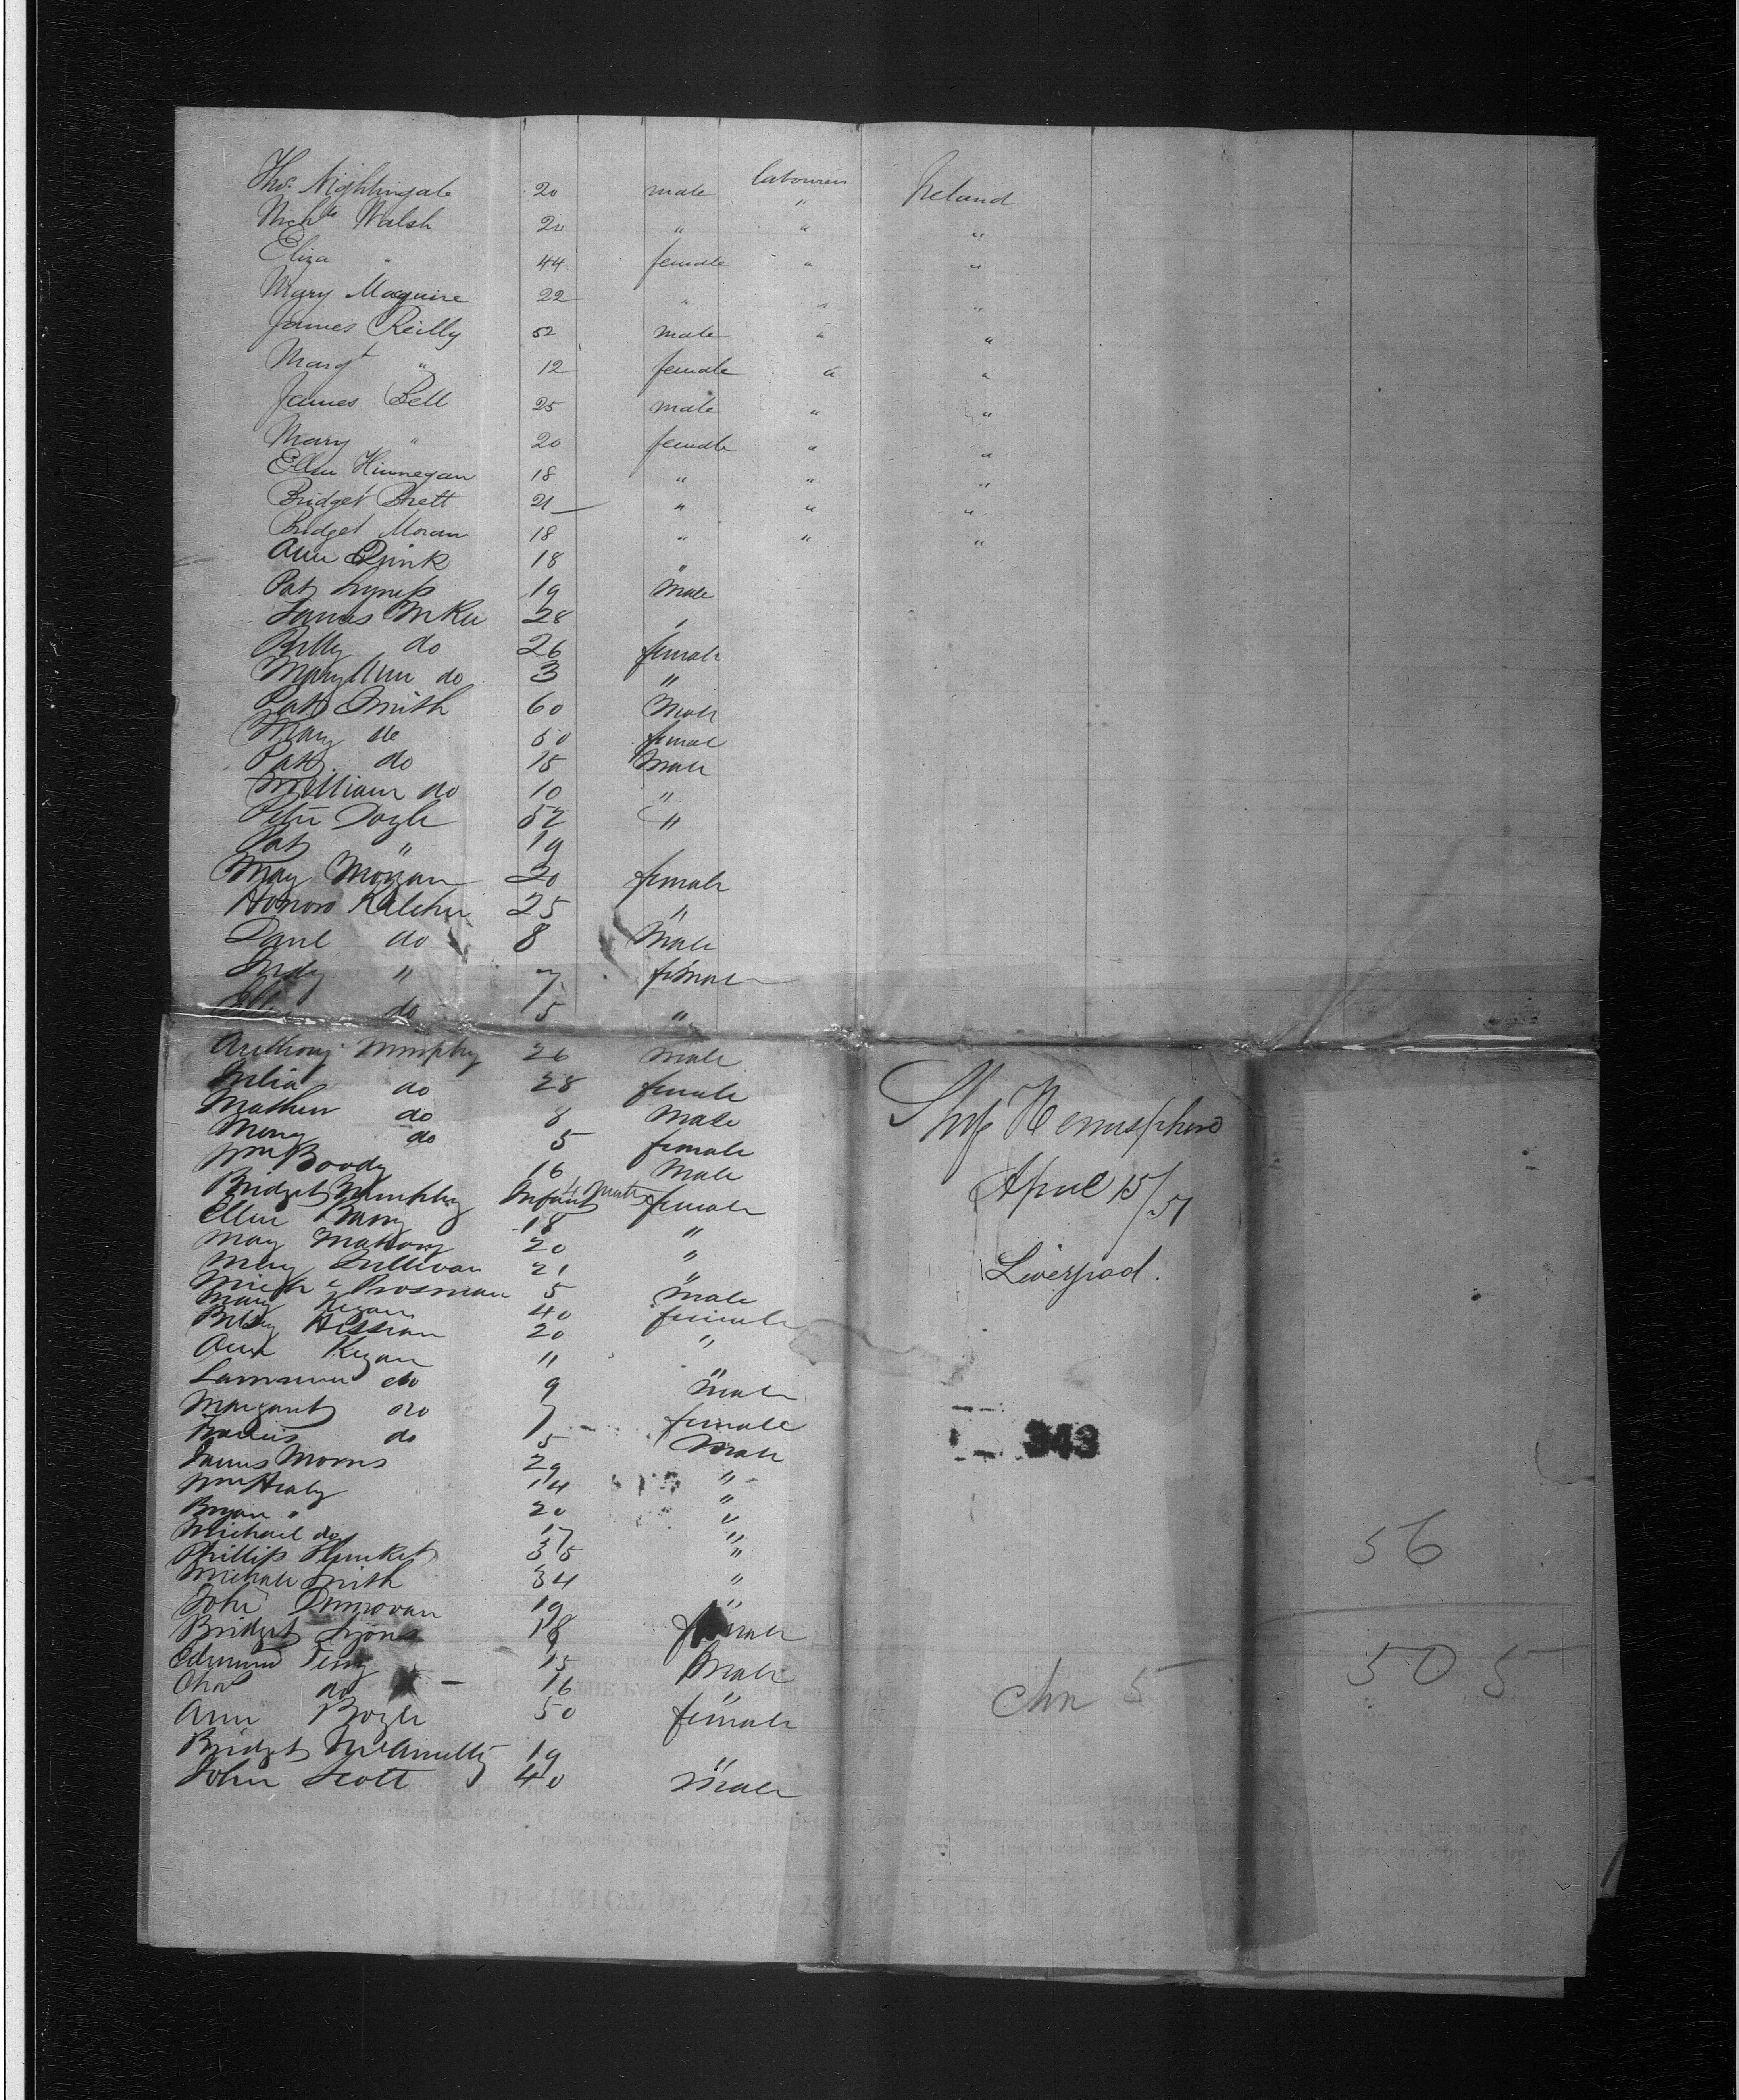 Thos. Nightingale 20 male labourers Ireland
Nichls Walsh 20 " " "
Eliza " 44 female " "
Mary Maguire 22 " " "
James Reilly 52 male " "
Margt " 12 female " "
James Bell 25 male " "
Mary " 20 female " "
Ellen Hinnegan 18 " " "
Bridget Brett 21 " " "
Bridget Moran 18 " " "
Ann Quink 18 "
Pat Lynch 19 Male
James McKee 28 "
Billy do 26 female
Mary Ann do 3 "
Patk Smith 60 Male
Mary do 50 female
Patk do 15 Male
William do 10 "
Peter Doyle 52 "
Pat " 19
Mary Morgan 20 female
Honora Kelcher 25 "
Danl do 8 Male
Judy " 7 female
Ellen do 5 "
Anthony Murphy 26 male
Julia do 28 female
Mathew do 8 Male
Mary do 5 female
Wm Boody 16 Male
Bridget Murphy Infant 4 Mths female
Ellen Barry 18 "
Mary Mahony 20 "
Mary Sullivan 21 "
Michl Brosnan 5 male
Mary Kegan 40 female
Betsy Hessian 20 "
Ann Kegan 11 "
Lawrence do 9 male
Margaret do 7 female
Francis do 5 Male
James Morris 29 "
Wm Healy 14 "
Bryan " 20 "
Michael do 17 "
Phillip Plunket 35 "
Michael Smith 34 "
John Donnovan 19 "
Bridget Lyons 18 female
Edmund Terry 15 Male
Chas do 16 "
Ann Boyle 50 female
Bridget McAnulty 19 "
John Scott 40 Male
Ship Hemisphere
April 15/51
Liverpool.
343
56
505
Chn 5